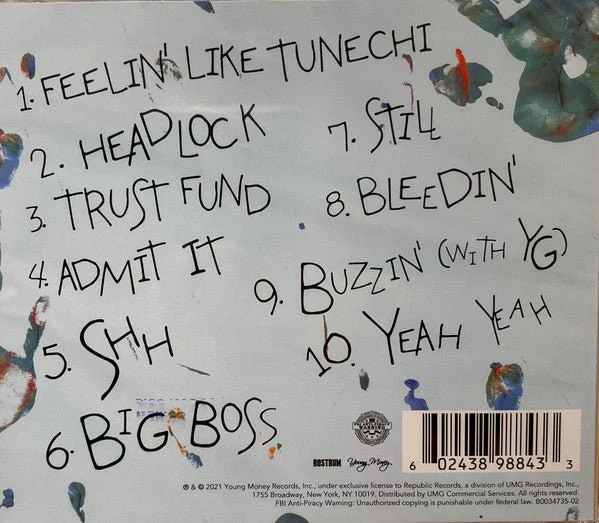 1. FEELIN' LIKE TUNECHI
2. HEADLOCK
3. TRUST FUND
4. ADMIT IT
5. SHH
6. BIG BOSS
7. STILL
8. BLEEDIN'
9. BUZZIN' (WITH YG)
10. YEAH YEAH
ROSTRUM Young Money
6 02438 98843 3
℗ & © 2021 Young Money Records, Inc., under exclusive license to Republic Records, a division of UMG Recordings, Inc.,
1755 Broadway, New York, NY 10019. Distributed by UMG Commercial Services. All rights reserved.
FBI Anti-Piracy Warning: Unauthorized copying is punishable under federal law. B0034735-02